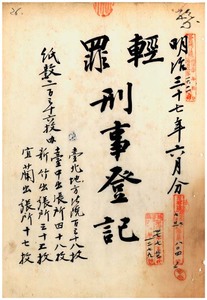 明治三十七年六月分
輕罪刑事登記
紙數二百三十六枚内
臺北地方法院百三十八枚
臺中出張所四十八枚
新竹出張所三十三枚
宜蘭出張所十七枚
26.